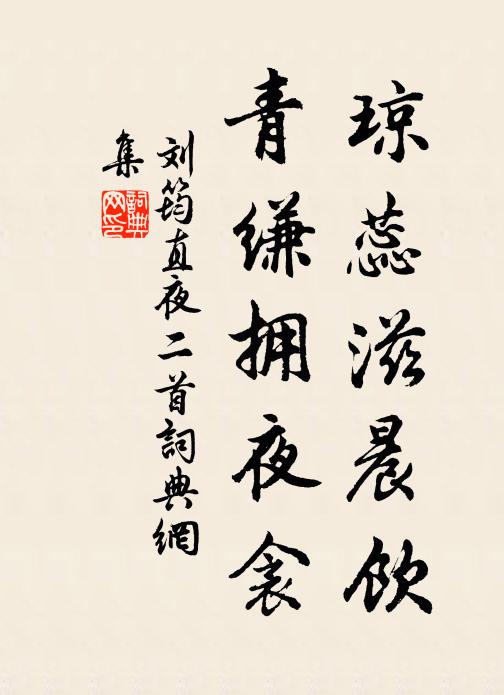 琼蕊滋晨饮
青缣拥夜衾
刘筠直夜二首詞典網
集
詞典網印